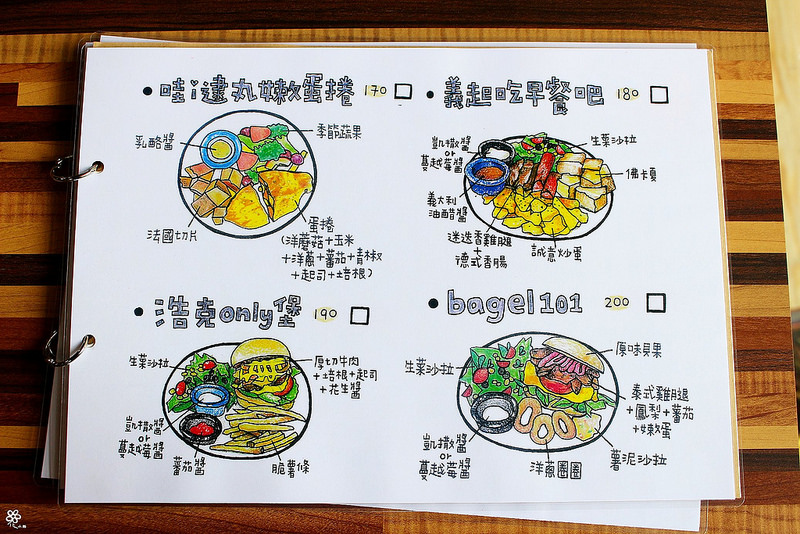 哇i逮丸嫩蛋捲 170
乳酪醬
季節蔬果
法國切片
蛋捲
(洋蘑菇+玉米
+洋蔥+蕃茄+青椒
+起司+培根)
義起吃早餐吧 180
凱撒醬
or
蔓越莓醬
生菜沙拉
佛卡夏
義大利
油醋醬
迷迭香雞腿
+
德式香腸
誠意炒蛋
浩克only堡 190
生菜沙拉
厚切牛肉
+培根+起司
+花生醬
凱撒醬
or
蔓越莓醬
蕃茄醬
脆薯條
bagel 101 200
生菜沙拉
原味貝果
泰式雞腿
+鳳梨+蕃茄
+嫩蛋
凱撒醬
or
蔓越莓醬
洋蔥圈圈
薯泥沙拉